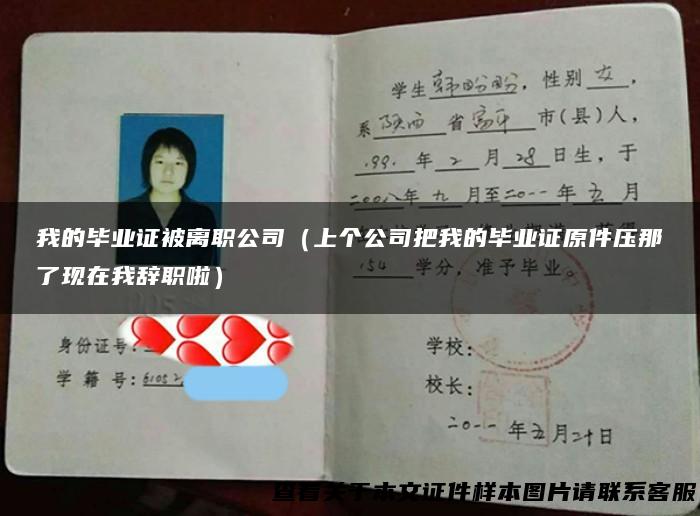 学生韩盼盼，性别女，
系陕西省富平市(县)人，
199.年2月28日生，于
二00八年九月至二0一一年五月
我的毕业证被离职公司（上个公司把我的毕业证原件压那
了现在我辞职啦）
154学分，准予毕业。
身份证号：
学籍号：61052
学校：
校长：
二0一一年五月二十日
查看关于本文证件样本图片请联系客服